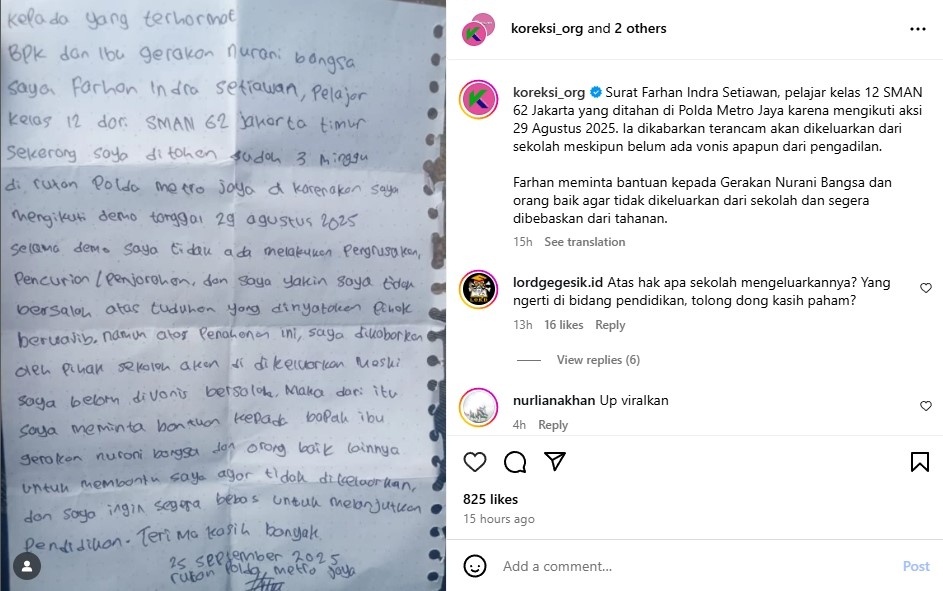 Kepada yang terhormat
BPK dan Ibu gerakan nurani bangsa
saya Farhan Indra setiawan, Pelajar
kelas 12 dari SMAN 62 jakarta timur
sekarang saya ditahan sudah 3 minggu
di rutan Polda metro jaya di karenakan saya
mengikuti demo tanggal 29 agustus 2025
selama demo saya tidak ada melakukan Pengrusakan,
Pencurian/penjarahan, dan saya yakin saya tidak
bersalah atas tuduhan yang dinyatakan Pihak
berwajib. namun atas Penahanan ini, saya dikabarkan
oleh pihak sekolah akan di dikeluarkan Meski
saya belom divonis bersalah. Maka dari itu
saya meminta bantuan kepada bapak ibu
gerakan nurani bangsa dan orang baik lainnya
untuk membantu saya agar tidak dikeluarkan,
dan saya ingin segera bebas untuk melanjutkan
Pendidikan. Terima kasih banyak
25 September 2025
rutan Polda metro jaya
koreksi_org and 2 others
koreksi_org Surat Farhan Indra Setiawan, pelajar kelas 12 SMAN
62 Jakarta yang ditahan di Polda Metro Jaya karena mengikuti aksi
29 Agustus 2025. Ia dikabarkan terancam akan dikeluarkan dari
sekolah meskipun belum ada vonis apapun dari pengadilan.
Farhan meminta bantuan kepada Gerakan Nurani Bangsa dan
orang baik agar tidak dikeluarkan dari sekolah dan segera
dibebaskan dari tahanan.
15h See translation
lordgegesik.id Atas hak apa sekolah mengeluarkannya? Yang
ngerti di bidang pendidikan, tolong dong kasih paham?
13h 16 likes Reply
View replies (6)
nurlianakhan Up viralkan
4h Reply
825 likes
15 hours ago
Add a comment...
Post